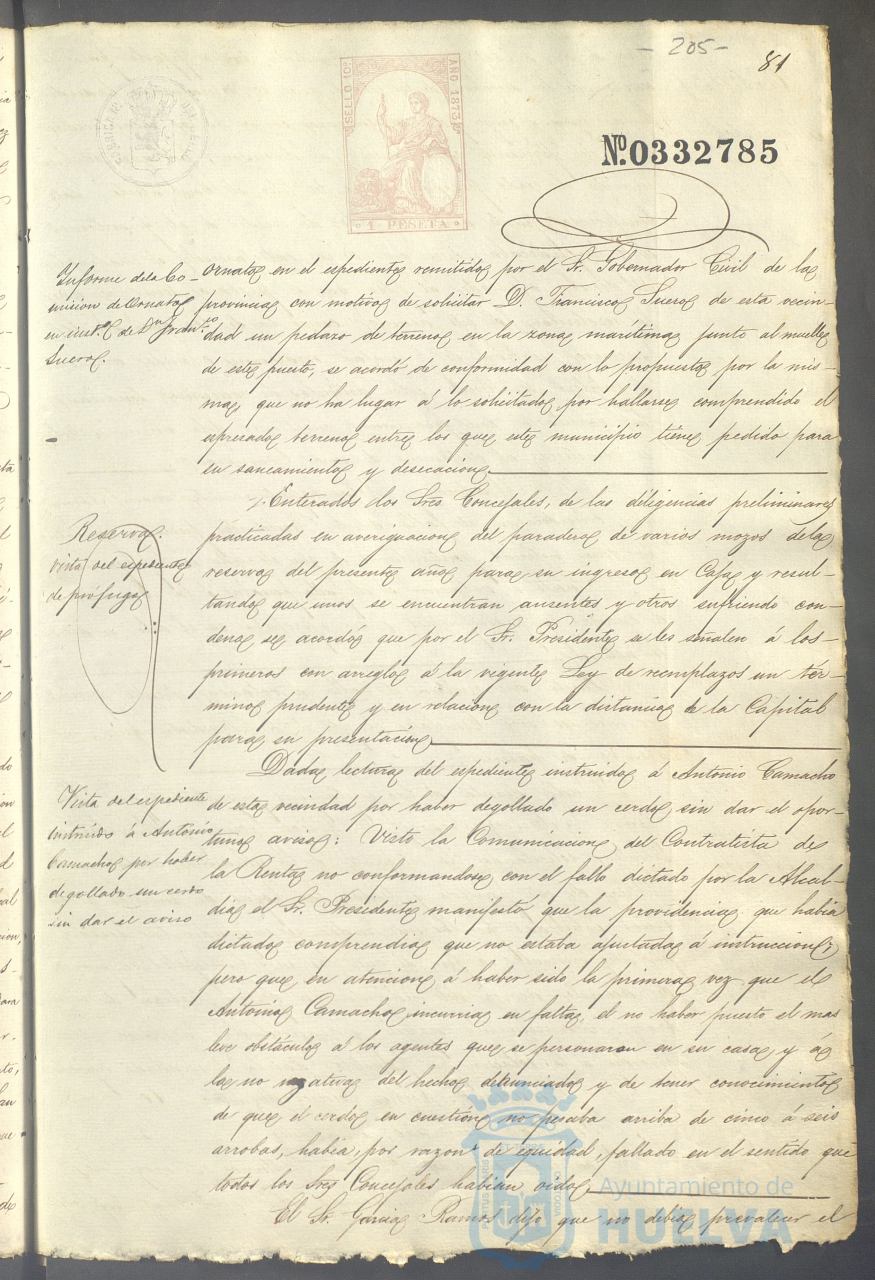 - 205 -
81
SELLO 10º
AÑO 1873
1 PESETA
Nº.0332785
Informe de la Co-
mision de Ornato
en inst.ª de Dn Fran.co
Suero.
ornato en el espediente remitido por el Sr. Gobernador Civil de la
provincia con motivo de solicitar D. Francisco Suero de esta vecin-
dad un pedazo de terreno en la zona marítima junto al muelle
de este puerto, se acordó de conformidad con lo propuesto por la mis-
ma, que no ha lugar á lo solicitado por hallarse comprendido el
espresado terreno entre los que este municipio tiene pedido para
su saneamiento y desecacion
Reserva.
vista del espediente
de prófugo
Enterados los Sres Concejales, de las diligencias preliminares
practicadas en averiguacion del paradero de varios mozos de la
reserva del presente año para su ingreso en Caja y resul-
tando que unos se encuentran ausentes y otros sufriendo con-
dena se acordó que por el Sr. Presidente se les señalen á los
primeros con arreglo á la vigente Ley de reemplazos un tér-
mino prudente y en relacion con la distancia de la Capital
para su presentación
Vista del espediente
instruido á Antonio
Camacho por haber
degollado un cerdo
sin dar el aviso
Dada lectura del espediente instruido á Antonio Camacho
de esta vecindad por haber degollado un cerdo sin dar el opor-
tuno aviso: Visto la Comunicacion del Contratista de
la Renta no conformandose con el fallo dictado por la Alcal-
dia el Sr. Presidente manifestó que la providencia que habia
dictado comprendia que no estaba ajustada á instruccion,
pero que en atencion á haber sido la primera vez que el
Antonio Camacho incurria en falta, el no haber puesto el mas
leve obstáculo á los agentes que se personaron en su casa y á
la no negativa del hecho denunciado y de tener conocimiento
de que el cerdo en cuestion no pesaba arriba de cinco á seis
arrobas, habia, por razon de equidad, fallado en el sentido que
todos los Sres Concejales habian oido
El Sr. Garcia Ramos dijo que no debia prevalecer el
Ayuntamiento de
HUELVA